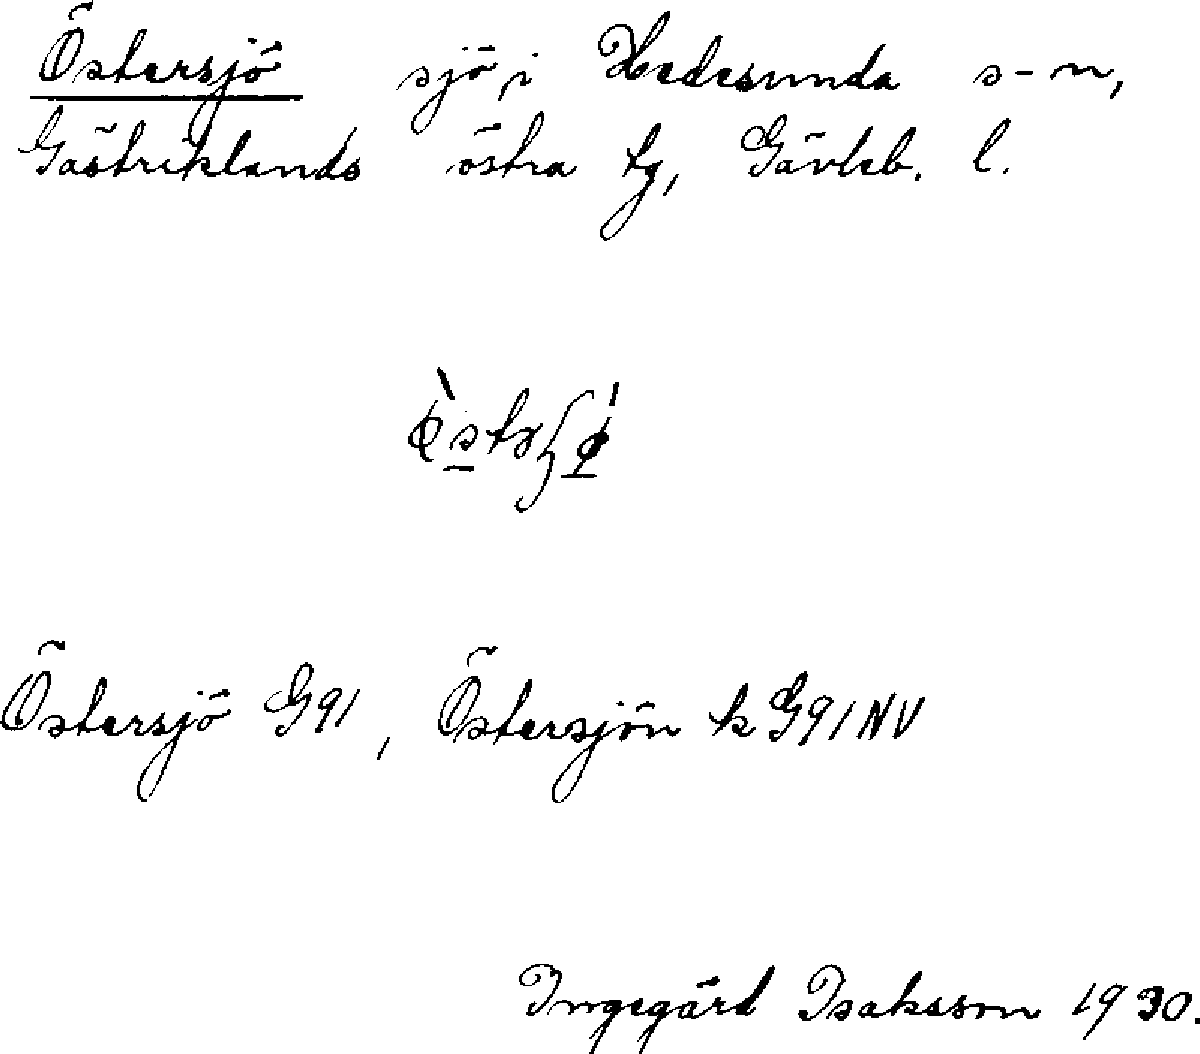 Östersjö sjö i Hedesunda s-n,
Gästriklands östra tg, Gävleb. l.
Östersjö G91, Östersjön k G91NV
Ingegärd Isaksson 1930.